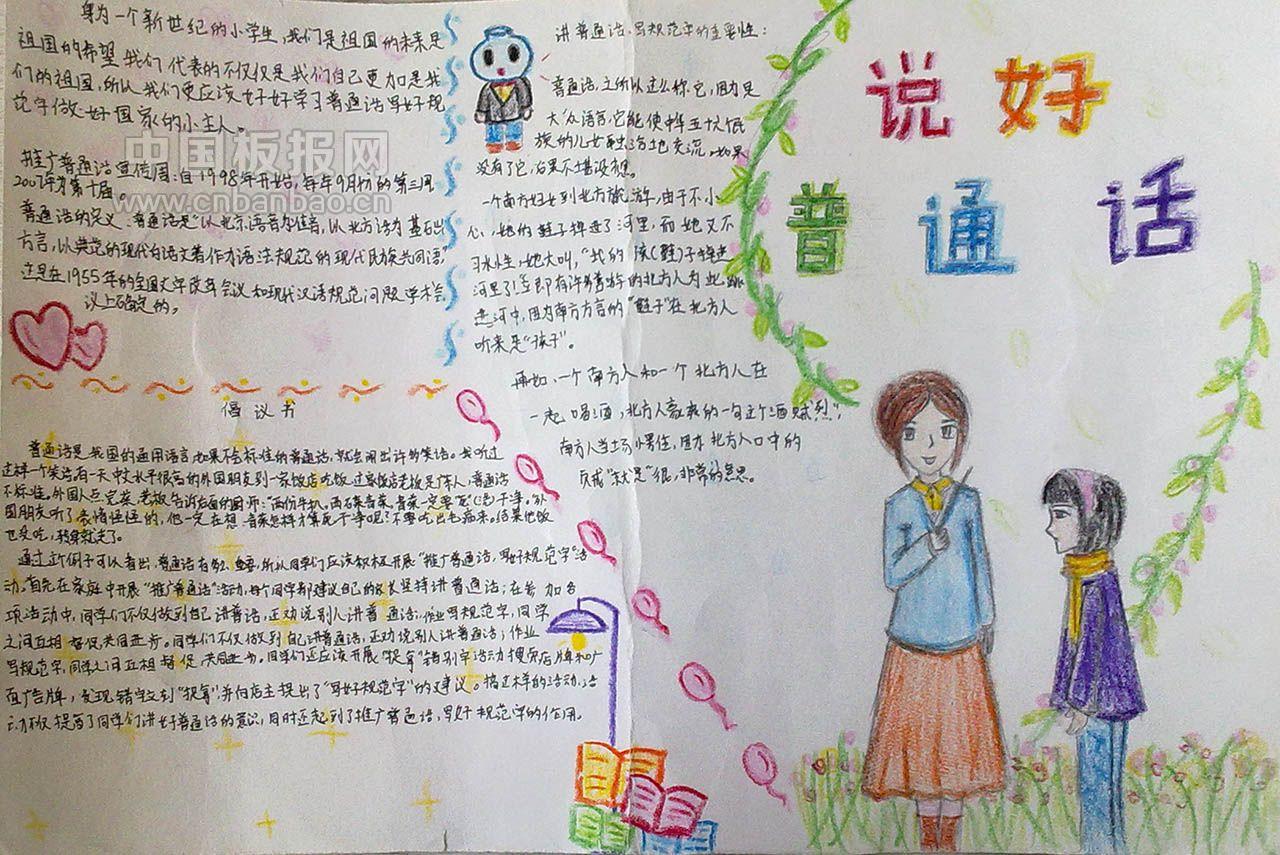 说好
普通话
身为一个新世纪的小学生,我们是祖国的未来是
祖国的希望 我们代表的不仅仅是我们自己更加是我
们的祖国,所以我们更应该好好学习普通话 写好规
范字做一好国家的小主人。
中国板报网
www.cnbanbao.cn
推广普通话宣传周:自1998年开始,每年9月份的第三周
2007年为第十届。
普通话的定义:普通话是"以北京语音为标准音,以北方话为基础
方言,以典范的现代白话文著作为语法规范的现代民族共同语,"
这是在1955年的全国文字改革会议和现代汉语规范问题学术会
议上确定的。
倡议书
普通话是我国的通用语言,如果不会标准的普通话,就会闹出许多的笑话。我听过
这样一个笑话:有一天中文水平很高的外国朋友到一家饭店吃饭,这家饭店老板是广东人,普通话
不标准。外国人点完菜,老板告诉后面的厨师:"两份牛扒,两
国朋友听了
也没吃,转身就走了。
通过这个例子可以看出,普通话有多么重要,所以同学们应该积极开展"推广普通话,写好规范字"活
动。首先在家庭中开展"推广普通话"活动,每个同学都建议自己的家长坚持讲普通话;在参加各
项活动中,同学们不仅做到自己讲普话,还劝说别人讲普通话;作业写规范字,同学
之间互相督促共同进步。同学们不仅做到自己讲普通话,还劝说别人讲普通话;作业
写规范字,同学之间互相督促,共同进步。同学们还应该开展"捉拿"错别字活动 搜觅店牌和广
面广告牌,发现错字立刻"捉拿",并向店主提出了"写好规范字"的建议。搞这样的活动,活
动不仅提高了同学们讲好普通话的意识,同时还起到了推广普通话,写好规范字的作用。
讲普通话、写规范字的重要性:
普通话,之所以这么称它,因为是
大众语言,它能使中华五十六个民
族的儿女融洽地交流。如果
没有了它,后果不堪设想。
一个南方妇女到北方旅游,由于不小
心,她的鞋子掉进了河里,而她又不
习水性,她大叫,"我的孩(鞋)子掉进
河里了!立即有许多善游的北方人为此跳
进河中,因为南方方言的"鞋子"在北方人
听来是"孩子"。
再如,一个南方人和一个北方人在
一起喝酒,北方人敬来的一句这个酒贼烈!",
南方人当场愣住,因为北方人口中的
贼"就是"很,非常的意思。